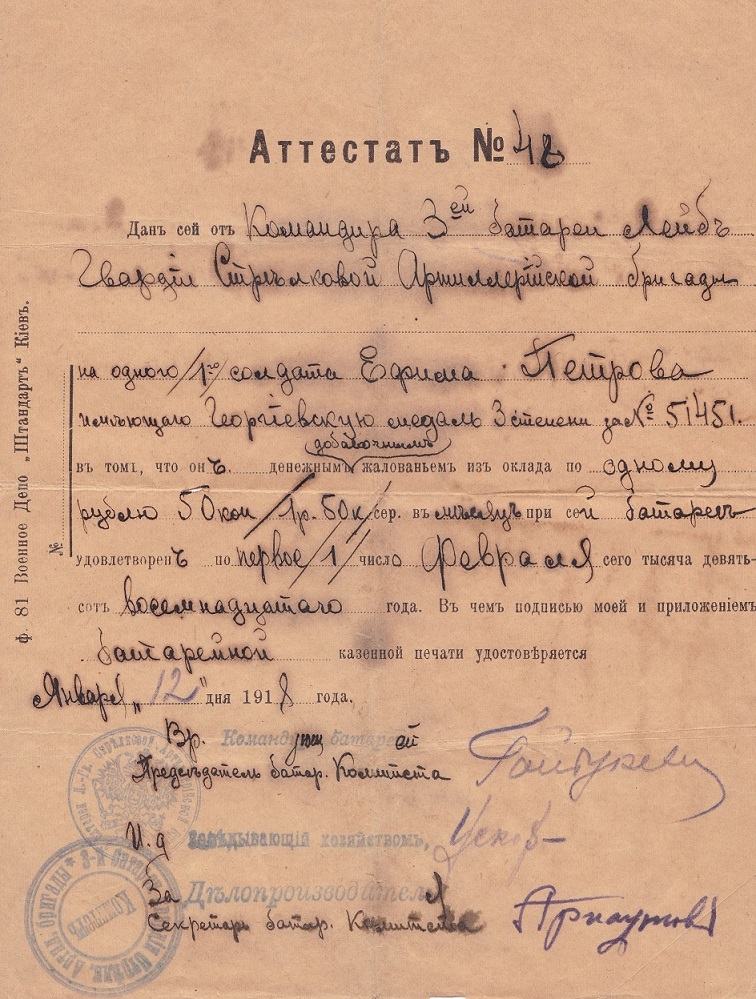 Аттестатъ № 48
Данъ сей отъ Командира 3ей батареи Лейбъ
Гвардіи Стрѣлковой Артиллерійской бригады
на одного /1го/ солдата Ефима Петрова
имѣющаго Георгіевскую медаль 3 степени за № 51451.
добавочнымъ
въ томъ, что онъ денежнымъ жалованьемъ изъ оклада по одному
рублю 50 коп /1 р. 50 к./ сер. въ мѣсяцъ при сей батареѣ
удовлетворенъ по первое /1/ число Февраля сего тысяча девять-
сотъ восемнадцатаго года. Въ чемъ подписью моей и приложеніемъ
батарейной казенной печати удостовѣряется
Января „12" дня 1918 года.
Вр. Командующій батареей
Предсѣдатель батар. Комитета
И.д Завѣдывающій хозяйствомъ,
За Дѣлопроизводителя
Секретарь батар. Комитета
Комитетъ
№
Ф. 81 Военное Депо „Штандартъ" Кіевъ.